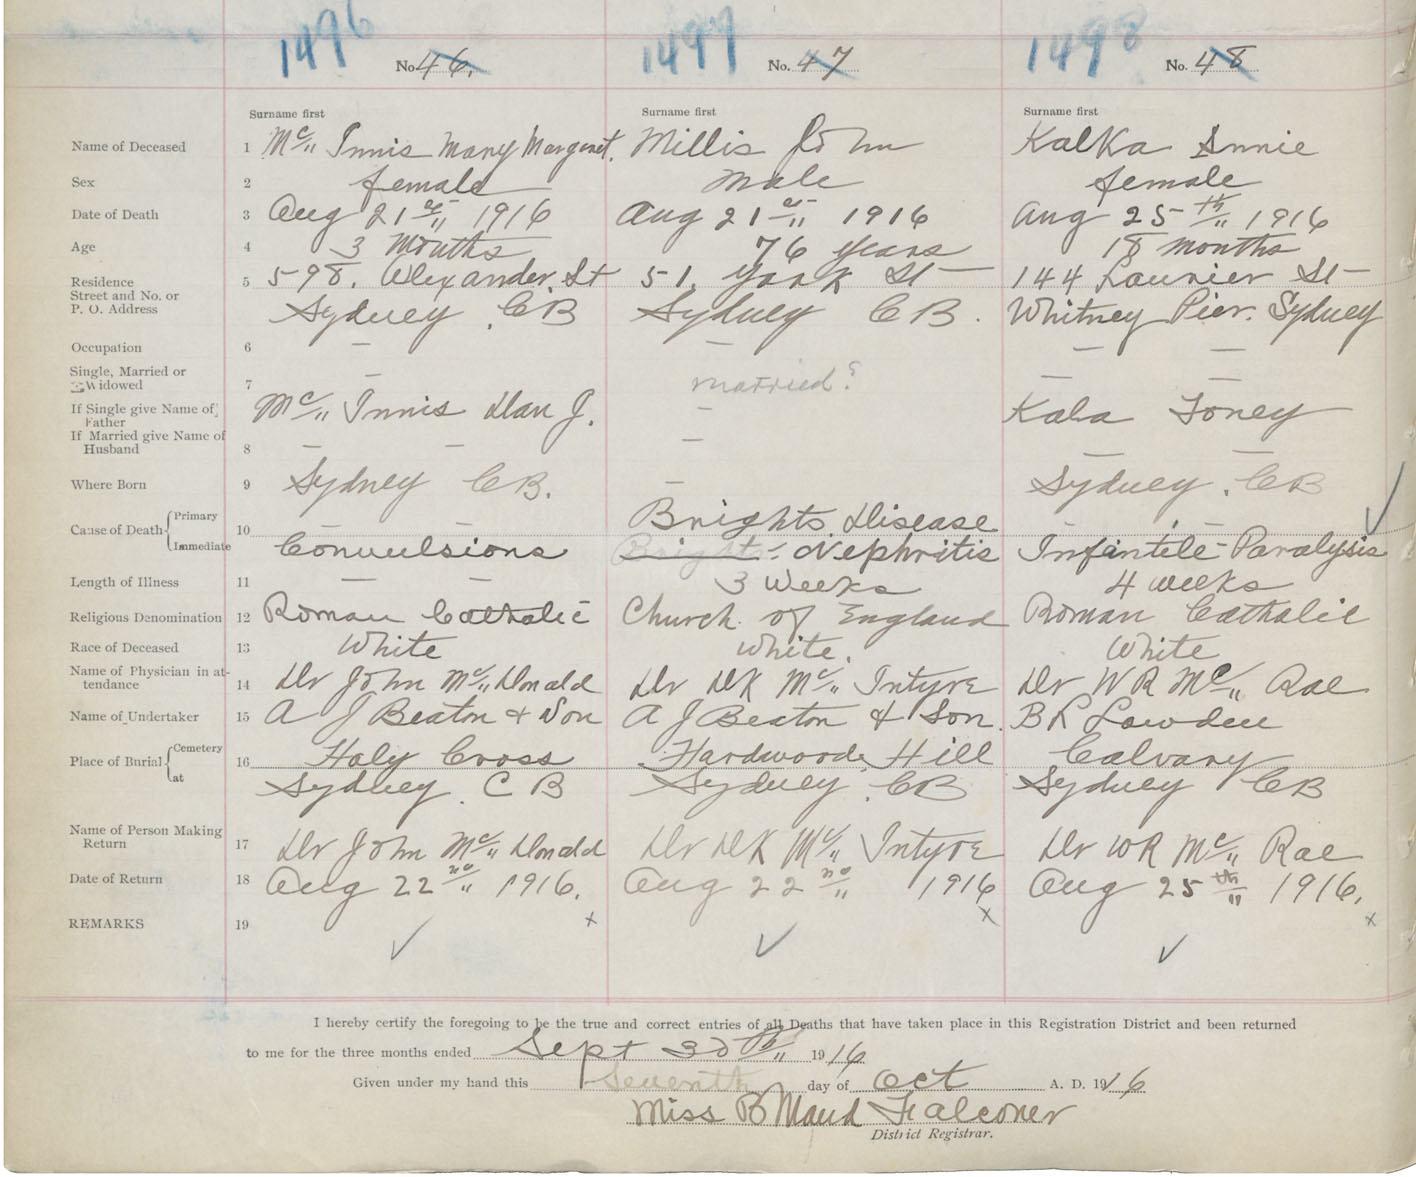 1496 1497 1498
No 46. No. 47 No. 48
Surname first Surname first Surname first
Name of Deceased 1 Mc Innis Mary Margaret. Millis John Kalka Annie
Sex 2 female male female
Date of Death 3 Aug 21st 1916 Aug 21st 1916 Aug 25th 1916
Age 4 3 Months 76 years 18 months
Residence 5 598. Alexander. St 51. York St 144 Laurier St
Street and No. or
P. O. Address Sydney. CB Sydney CB. Whitney Pier. Sydney
Occupation 6 — — — —
Single, Married or
Widowed 7 — married? — —
If Single give Name of Father Mc Innis Dan J. — Kaba Toney
If Married give Name of
Husband 8 — — — — —
Where Born 9 Sydney CB. — Sydney. CB
Cause of Death Primary 10 — — Brights Disease — —
Immediate Convulsions Brights Nephritis Infantile Paralysis
Length of Illness 11 — — 3 Weeks 4 weeks
Religious Denomination 12 Roman Catholic Church of England Roman Catholic
Race of Deceased 13 White White. White
Name of Physician in at-
tendance 14 Dr John Mc Donald Dr DK Mc Intyre Dr WR Mc Rae
Name of Undertaker 15 A J Beaton & Son A J Beaton & Son. B L Lowden
Place of Burial Cemetery 16 Holy Cross Hardwoode Hill Calvary
at Sydney. CB Sydney. CB Sydney CB
Name of Person Making
Return 17 Dr John Mc Donald Dr DK Mc Intyre Dr WR Mc Rae
Date of Return 18 Aug 22nd 1916. Aug 22nd 1916 Aug 25th 1916.
REMARKS 19 x x x
I hereby certify the foregoing to be the true and correct entries of all Deaths that have taken place in this Registration District and been returned
to me for the three months ended Sept 30th 1916
Given under my hand this Seventh day of Oct A. D. 1916
Miss B Maud Falconer
District Registrar.